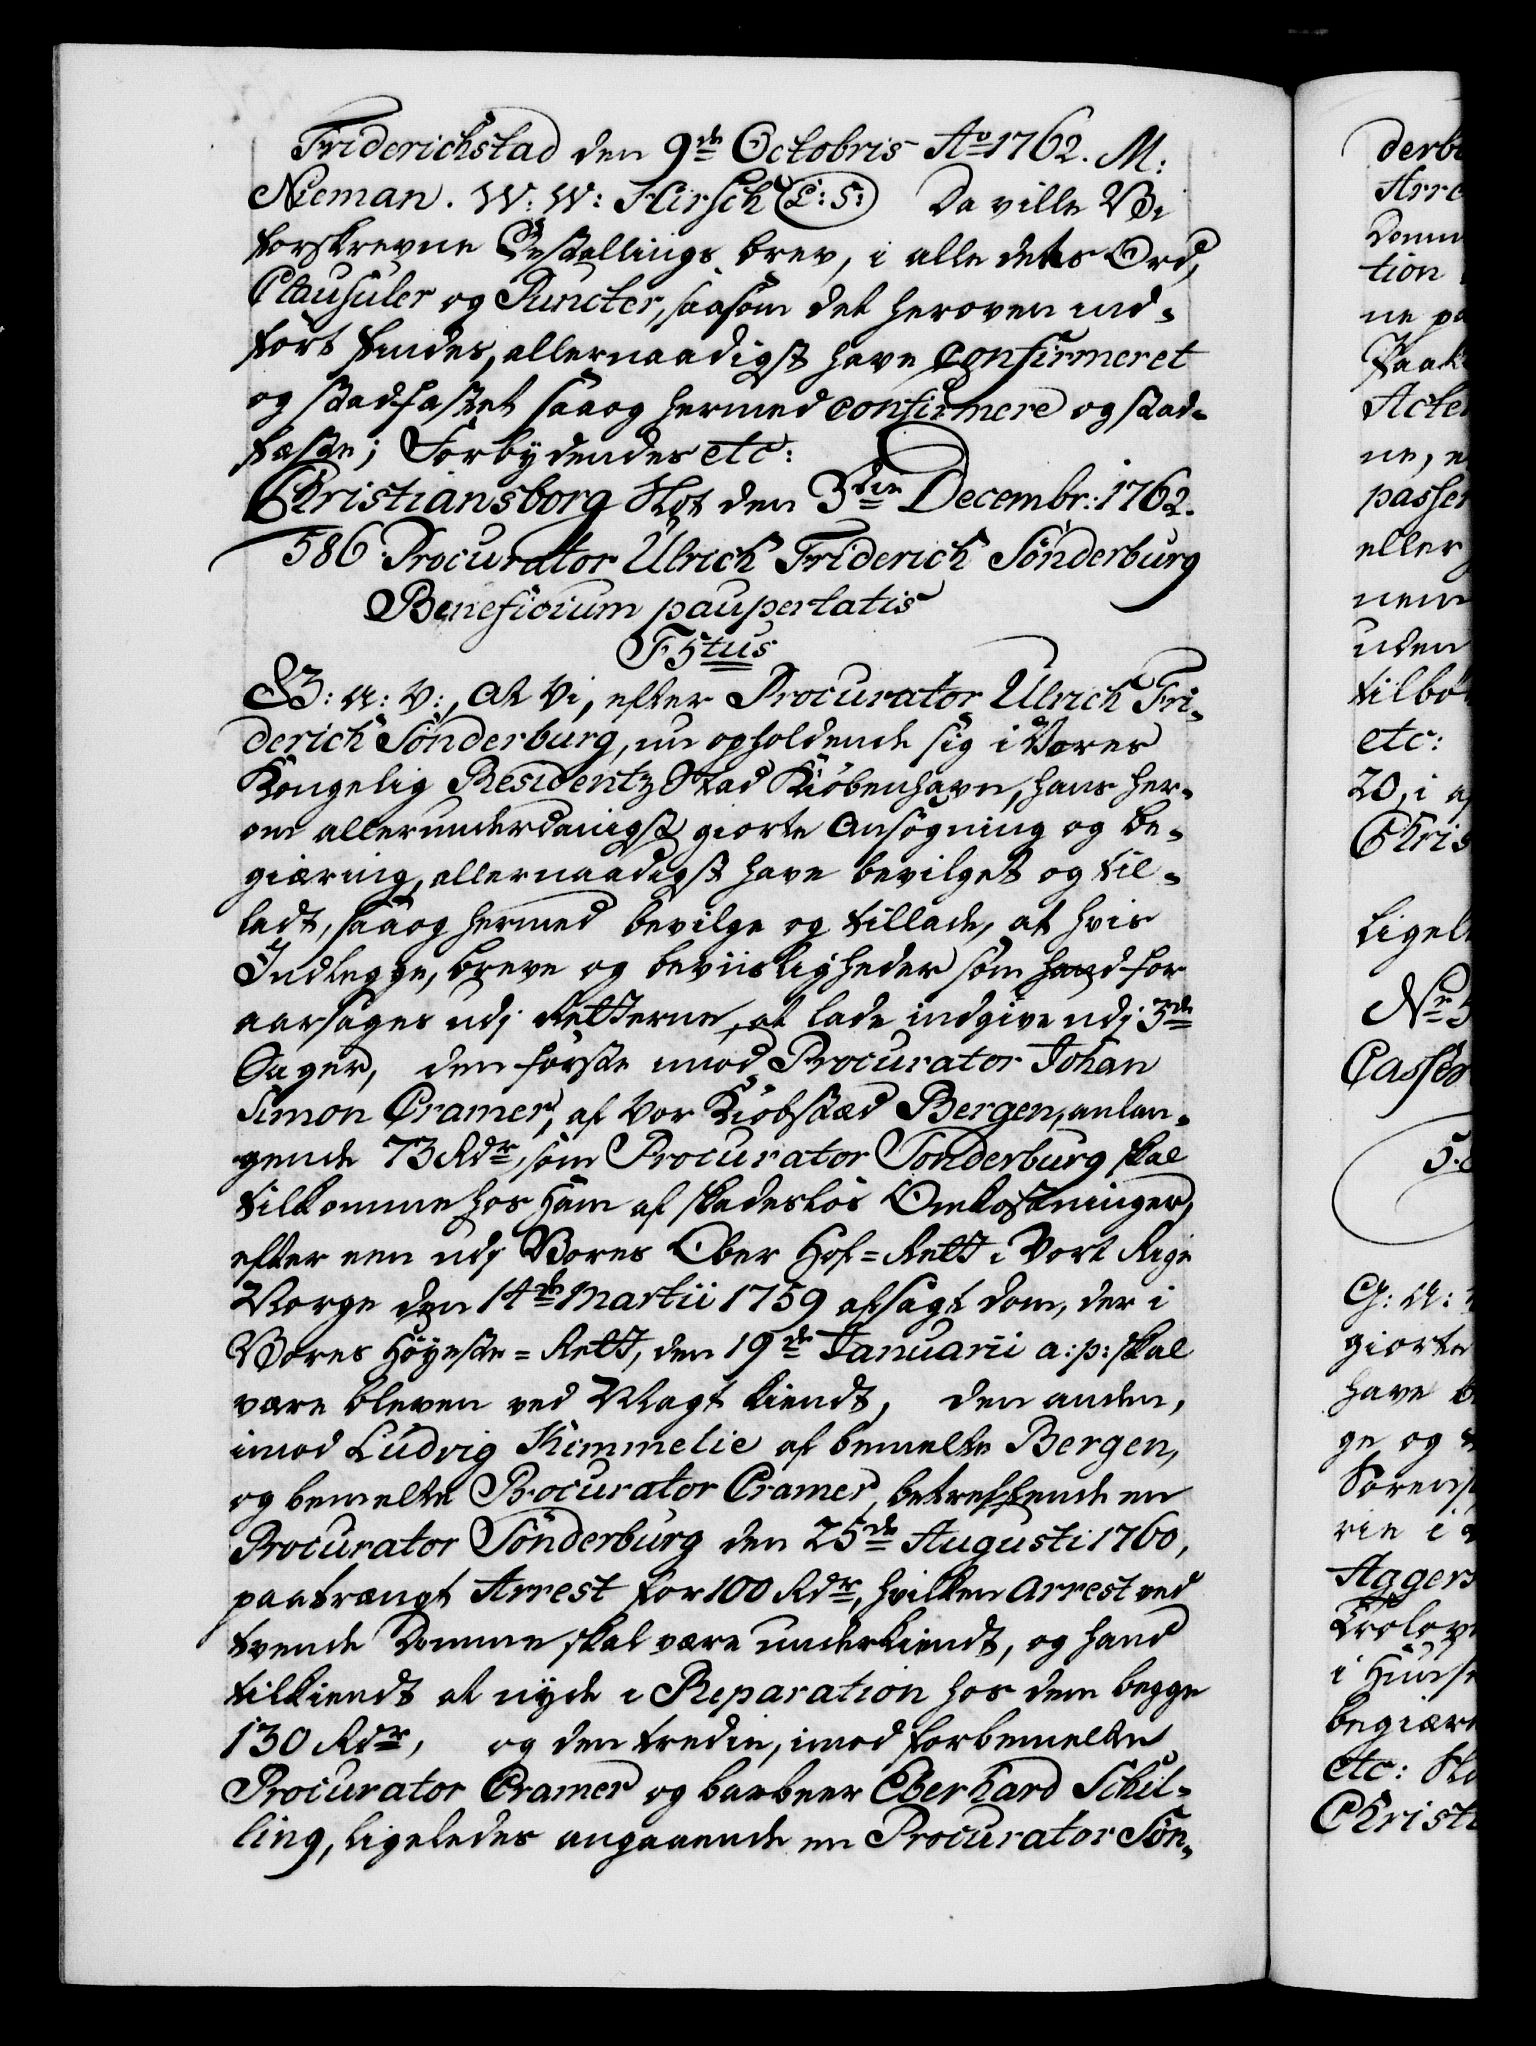 Friderichstad den 9de Octobris Ao 1762. M:
Nieman. W: W: Hirsch (L: S:) Da ville Vi
forskrevne Bestallings brev, i alle dets Ord,
Clausuler og Puncter, saasom det heroven ind-
ført findes, allernaadigst have confirmeret
og stadfæstet saa og hermed confirmere og stad-
fæste; Forbydendes etc:
Christiansborg Slot den 3die Decembr: 1762.
586 Procurator Ulrich Friderich Sönderburg
Beneficium paupertatis
F 5tus
G: A: V:, At Vi, efter Procurator Ulrich Fri-
derich Sönderburg, nu opholdende sig i Vores
Kongelig Residentz Stad Kiöbenhavn, hans her-
om allerunderdanigst giorte Ansögning og be-
giæring, allernaadigst have bevilget og til-
ladt, saa og hermed bevilge og tillade, at hvis
Indlegge, breve og beviisligheder som hand for-
aarsages udj Retterne, at lade indgive udj 3de
Sager, den förste imod Procurator Johan
Simon Cramer, af Vor Kiöbstæd Bergen, anlan-
gende 73 Rdr, som Procurator Sonderburg skal
tilkomme hos ham af skadeslös Omkostninger,
efter een udj Vores Ober Hof-Rett i Vort Rige
Norge den 14de Martii 1759 afsagt dom, der i
Vores Höyeste-Rett, den 19de Januarii a: p: skal
være bleven ved Magt kiendt, den anden,
imod Ludvig Kimmelie af bemelte Bergen,
og bemelte Procurator Cramer, betreffende en
Procurator Sönderburg den 25de Augusti 1760,
paatrængt Arrest for 100 Rdr, hvilken Arrest ved
tvende Domme skal være underkiendt, og hand
tilkiendt at nyde i Reparation hos dem begge
130 Rdr, og den tredie, imod forbemelte
Procurator Cramer og barbeer Eberhard Schil-
ling, ligeledes angaaende en Procurator Sön-
derb
Arre
Domm
tion
ne pa
Paak
Acte
ne, e
passer
eller
nem
uden
tilbö
etc:
20, i a
Chris
Ligel
No 5
Casse
5.
G: A:
giorte
have b
ge og
Sörens
rie i
Aggers
i Huus
begiær
etc: Sl
Christi